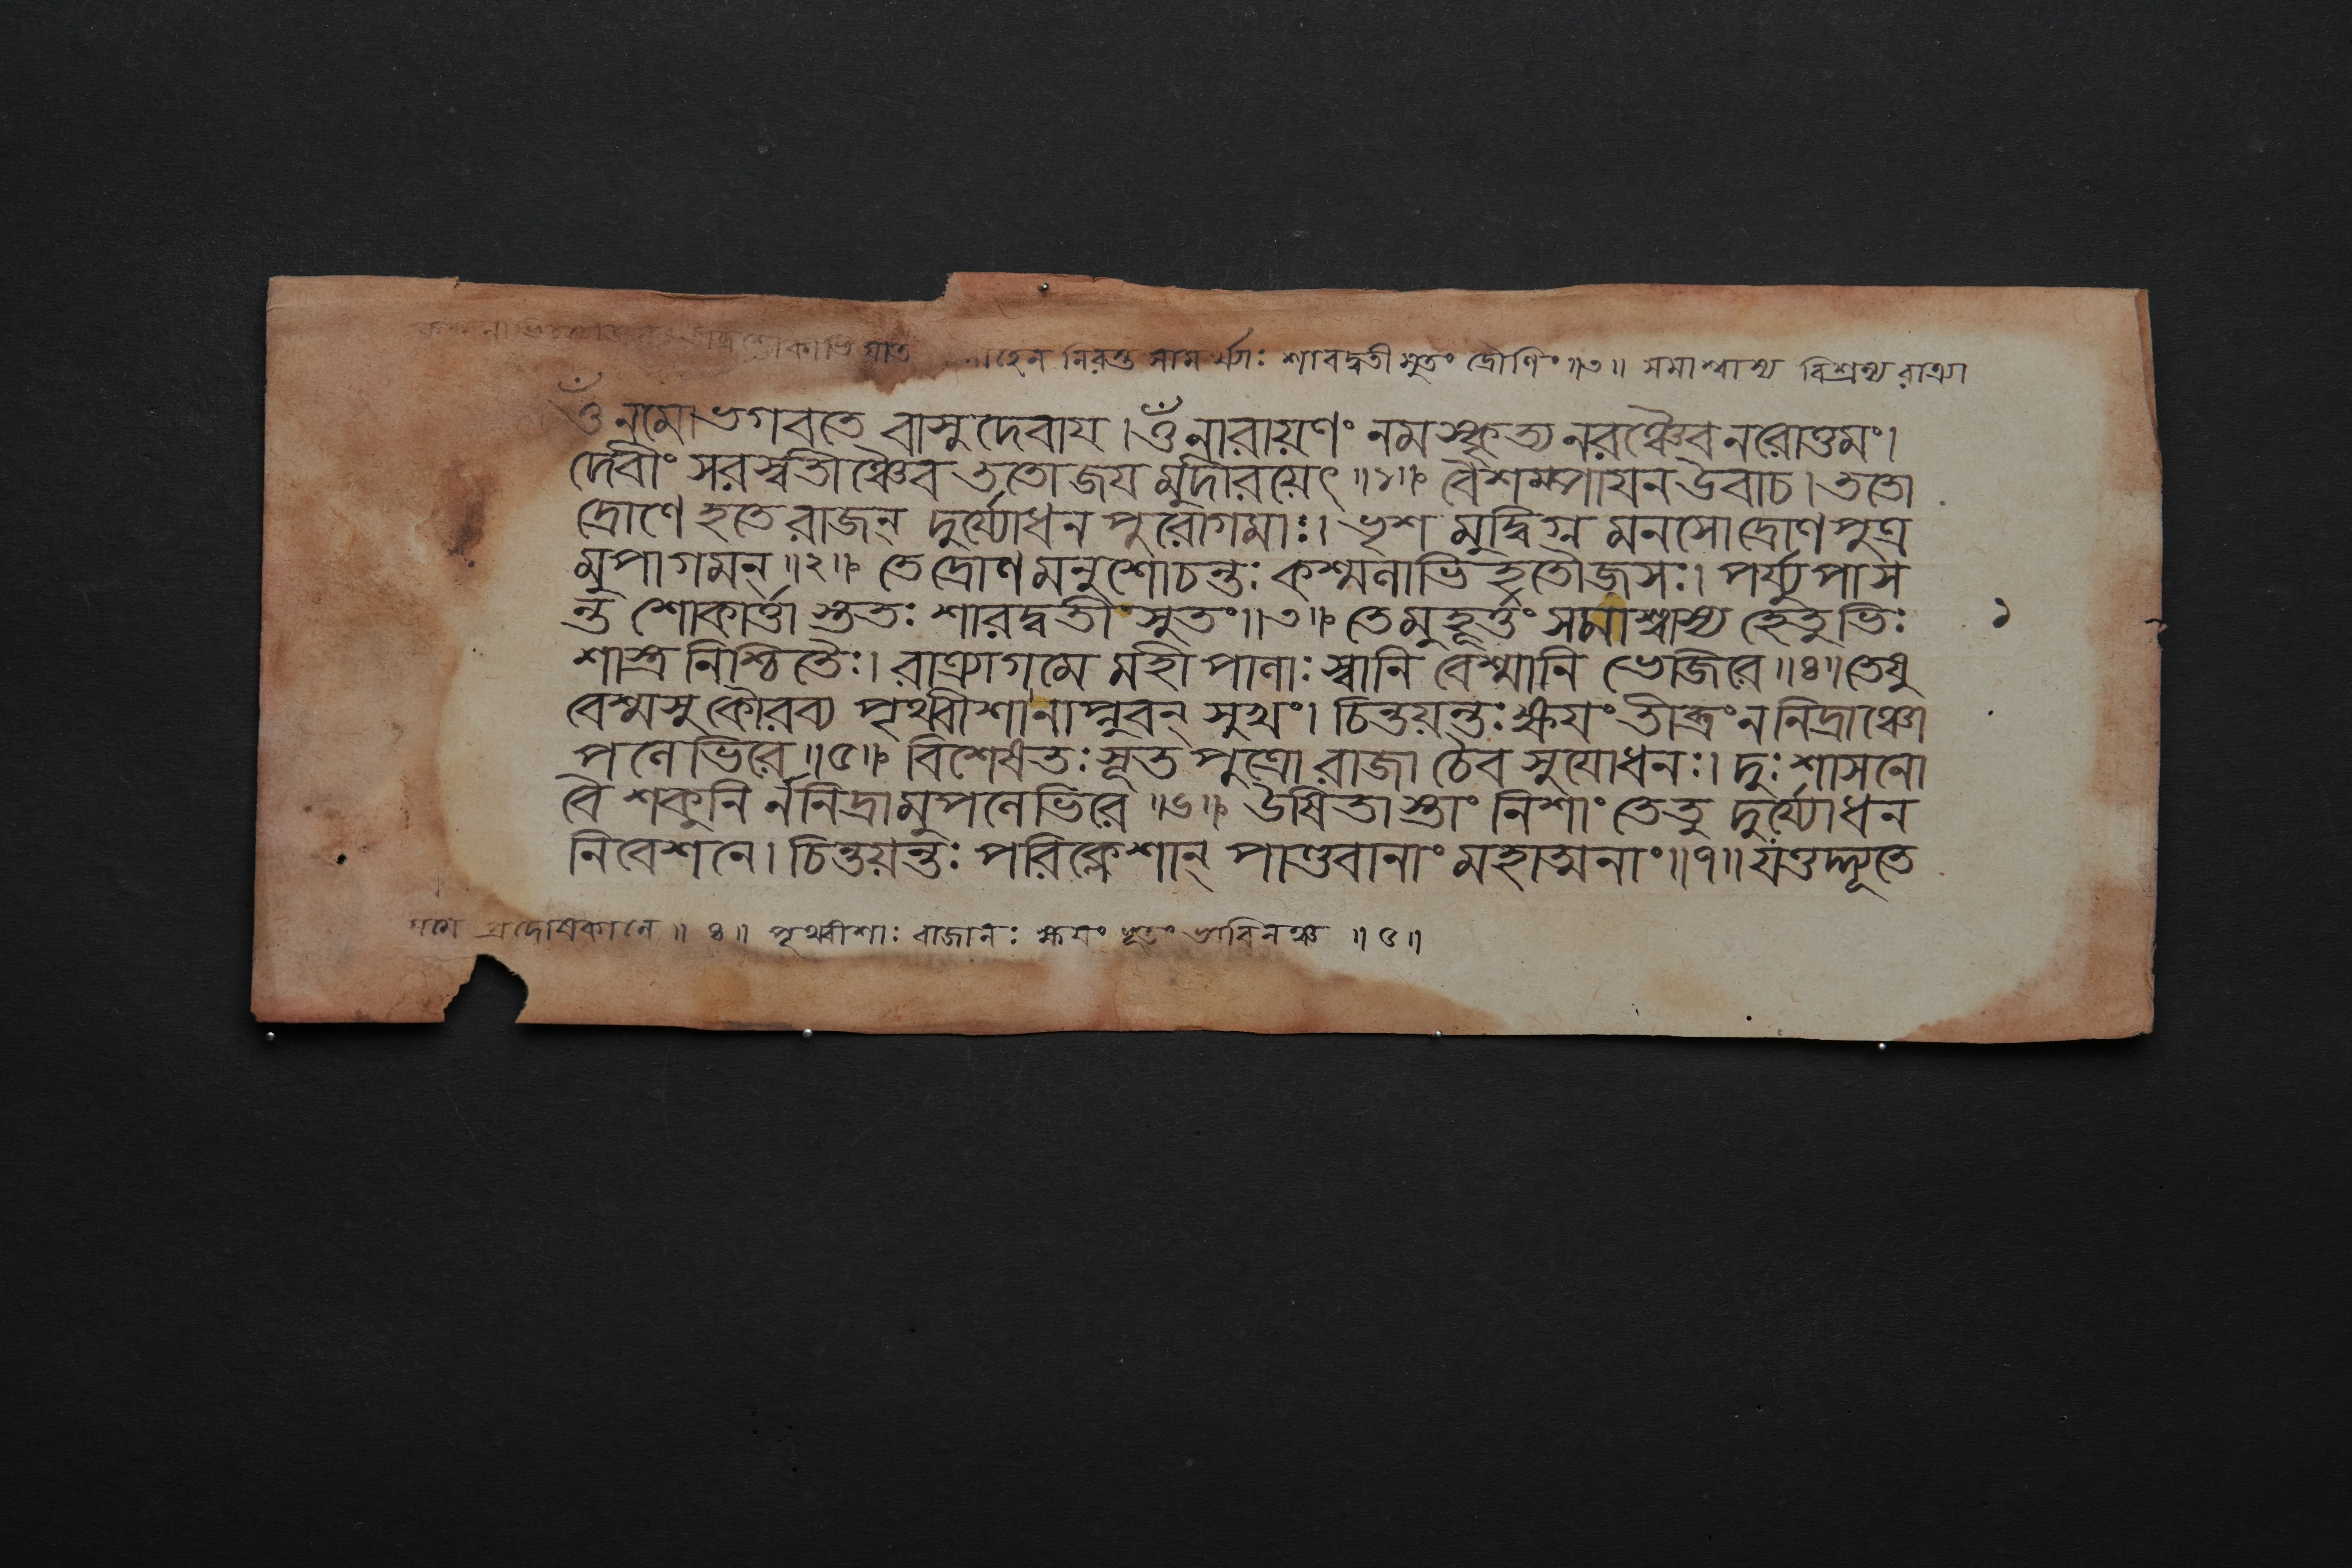 শোকাভিঘাত নিরস্ত সামর্থ্যাঃ শারদ্বতী সুতং দ্রৌণিং ॥৩॥ সমাশ্বাস্য বিশ্রভ্য রাত্র্যা
ওঁ নমো ভগবতে বাসুদেবায । ওঁ নারায়ণং নমস্কৃত্য নরঞ্চৈব নরোত্তমং ।
দেবীং সরস্বতীঞ্চৈব ততো জয মুদীরয়েৎ ॥১॥ বৈশম্পাযন উবাচ । ততো
দ্রোণে হতে রাজন্ দুর্য্যোধন পুরোগমাঃ । ভৃশ মুদ্বিগ্ন মনসো দ্রোণ পুত্র
মুপাগমন্ ॥২॥ তে দ্রোণ মনুশোচন্তঃ কশ্মলাভি হতৌজসঃ । পর্য্যুপাস
ন্ত শোকার্ত্তা স্ততঃ শারদ্বতী সুতং ॥৩॥ তে মুহূর্ত্তং সমাশ্বাস্য হেতুভিঃ
শাস্ত্র নিশ্চিতৈঃ । রাত্র্যাগমে মহী পালাঃ স্বানি বেশ্মানি ভেজিরে ॥৪॥ তেষু
বেশ্মসু কৌরব্য পৃথ্বীশা নাপ্নুবন্ সুখং । চিন্তয়ন্তঃ ক্ষযং তীব্রং ন নিদ্রাঞ্চো
পলেভিরে ॥৫॥ বিশেষতঃ সূত পুত্রো রাজা চৈব সুযোধনঃ । দুঃশাসনো
বৈ শকুনি র্ন নিদ্রামুপলেভিরে ॥৬॥ উষিতা স্তাং নিশাং তে তু দুর্য্যোধন
নিবেশনে । চিন্তয়ন্তঃ পরিক্লেশান্ পাণ্ডবানাং মহাত্মনাং ॥৭॥ যত্তদ্দ্যূতে
১
গমে প্রদোষকালে ॥ ৪ ॥ পৃথ্বীশাঃ রাজানঃ ক্ষযং ভূতং ভাবিনঞ্চ ॥ ৫ ॥